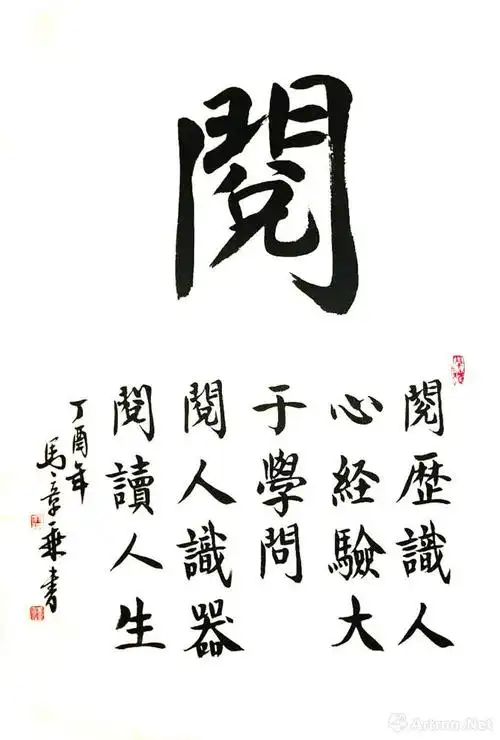 閲
閱歷識人
心经驗大
于學問
閱人識器
閱讀人生
丁酉年
馬章乘書
Artron.Net